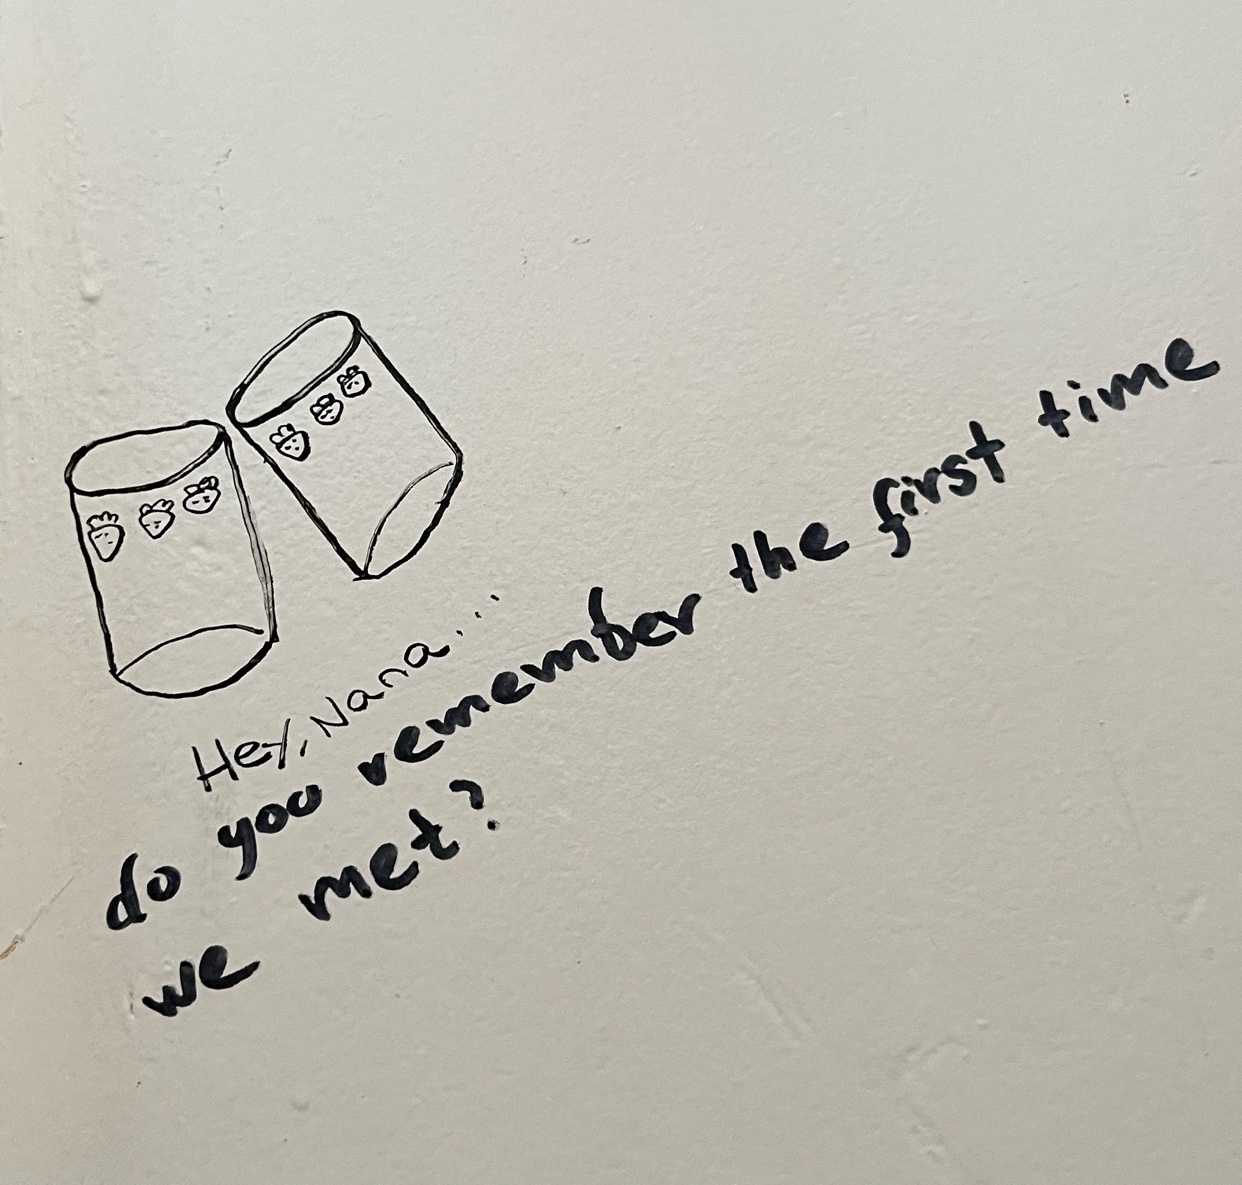 Hey, Nana...
do you remember the first time
we met?